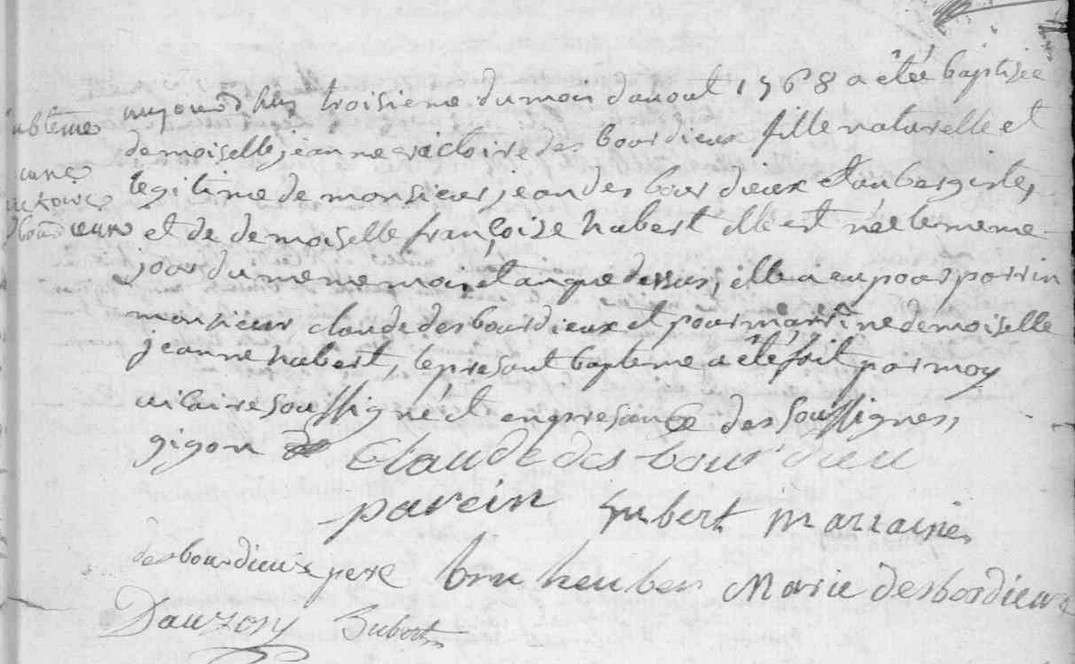 aujourd huy troisieme du moi daoout 1768 a étéé baptisée
demoiselle jeanne victoire des bourdieux fille naturelle et
legitime de monsieur jean des bour dieux et aubergiste,
et de demoiselle françoise habert elle est née le meme
jour du meme moi et an que dessus, elle a eu pour parrin
monsieur claude desbourdieux et pour marrine demoiselle
jeanne habert, le presant bapteme a été fait par moy
vicaire soussigné et en presance des soussignes,
gigon
Claude des bourdieu
parein hubert Marraine
desbourdieux pere Marie desbordieux
Dauzon hubert
bapteme
jeanne
victoire
Dbourdieux